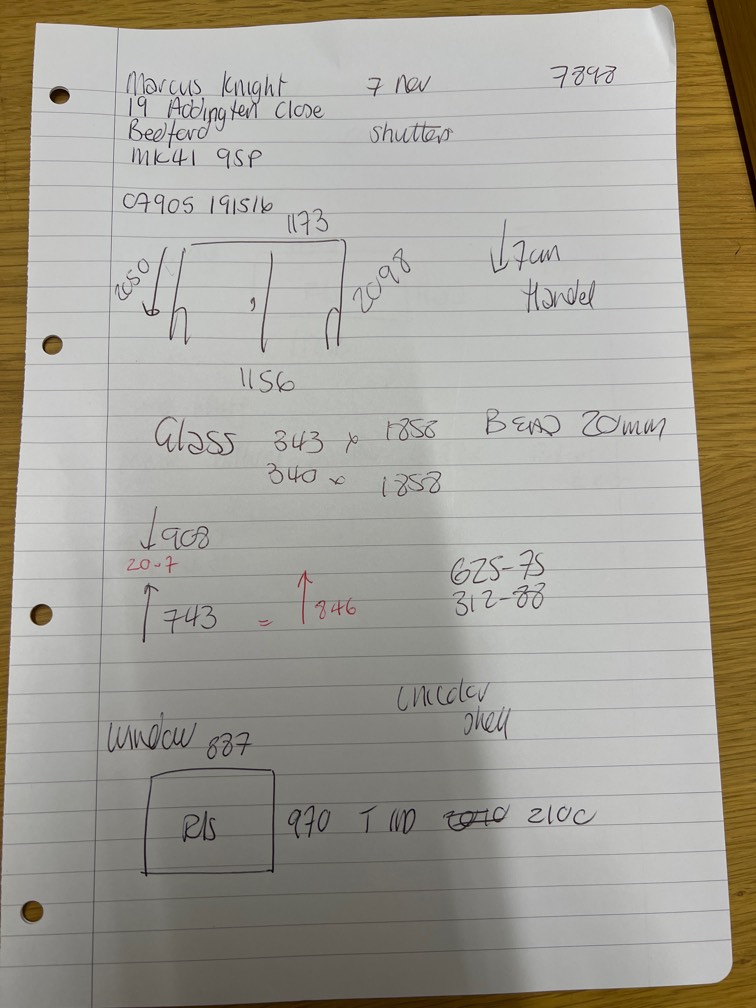 Marcus Knight 7 Nov 7898
19 Addington Close
Bedford Shutters
MK41 9SP
07905 191516
1173
2050 2098 7cm
Handel
1156
Glass 343 x 1858 BEAD 20mm
340 x 1858
908
20-7
743 = 846
625-75
312-88
shell
Window 887
R/S 970 210C